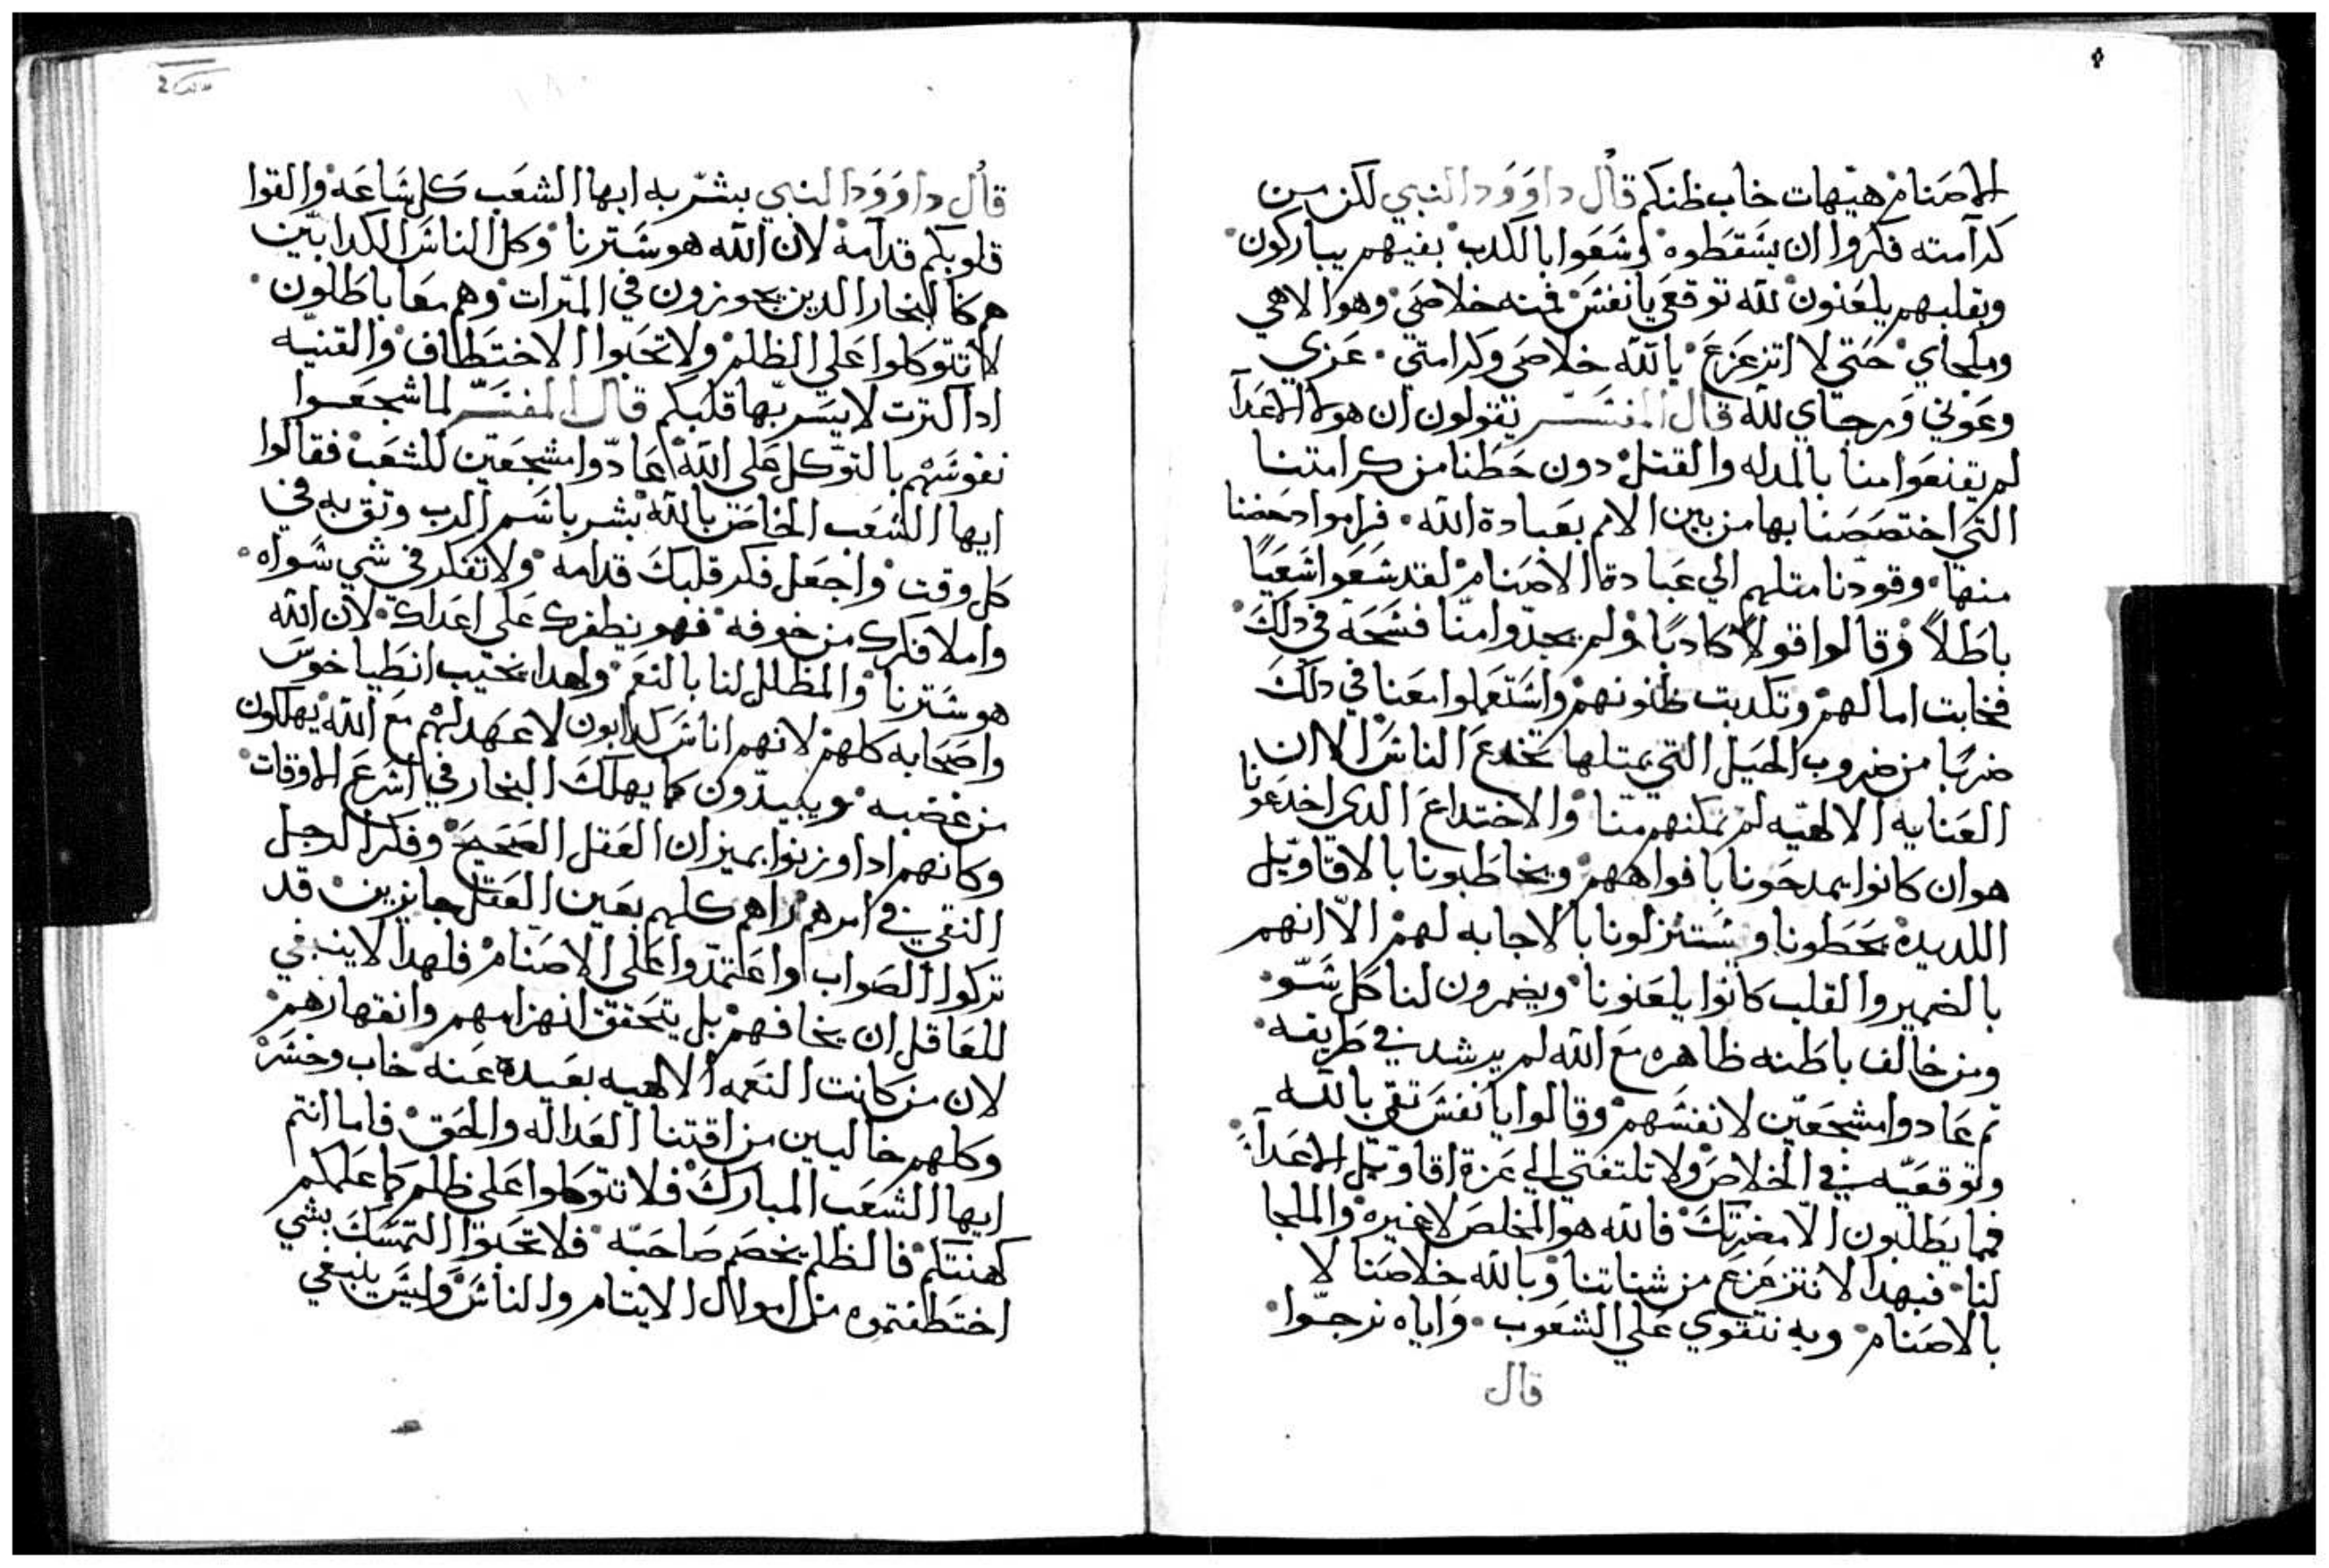 الاصنام هيهات خاب ظنكم قال داوود النبي لكن من
كرآمته فكروا ان يسقطوه وسعوا بالكدب بفيهم يباركون
وبقلبهم يلعنون لله توقعي يا نفس فمنه خلاصي وهو الاهي
وملجاي حتي لا اتزعزع بالله خلاصي وكرامتي عزي
وعوني ورجاي لله قال المفسر يقولون ان هولا الاعدآ
لم يقنعوا منا بالمدله والقتل دون حطنا من كرامتنا
التي اختصصنا بها من بين الامم بعبادة الله فراموا دحضنا
منها وقودنا متلهم الي عبادة الاصنام لقد سعوا سعيًا
باطلاً وقالوا قولاً كادبًا ولم يجدوا منا فسحه في دلك
فخابت امالهم وتكدبت ظنونهم واستعملوا معنا في دلك
ضربًا من ضروب الحيل التي بمتلها تخدع الناس الا ان
العنايه الالهيه لم تمكنهم منا والاختداع الدي اخدعونا
هو ان كانوا يمدحونا بافواههم ويخاطبونا بالاقاويل
اللديده يحطونا ويستنزلونا بالاجابه لهم الا انهم
بالضمير والقلب كانوا يلعنونا ويضمرون لنا كل سو
ومن خالف باطنه ظاهره مع الله لم يرشد في طريقه
تم عادوا مشجعين لانفسهم وقالوا يا نفس تقي بالله
وتوقعيه في الخلاص ولا تلتفتي الي عزة اقاويل الاعدآ
فما يطلبون الا مضرتك فالله هو المخلص لا غيره والملجا
لنا فبهدا لا نتزعزع من شتاتنا وبالله خلاصنا لا
بالاصنام وبه نتقوي علي الشعوب واياه نرجوا
قال
قال داوود النبي بشر به ايها الشعب كل ساعه والقوا
قلوبكم قدآمه لان الله هو سترنا وكل الناس الكدابين
هم كالبخار الدين يجوزون في المترات وهم معا باطلون
لا تتوكلوا علي الظلم ولا تحبوا الاختطاف والقنيه
ادا كترت لا يسر بها قلبكم قال المفسر لما شجعوا
نفوسهم بالتوكل علي الله عادوا مشجعين للشعب فقالوا
ايها الشعب الخاص بالله بشر باسم الرب وتق به في
كل وقت واجعل فكر قلبك قدامه ولا تفكر في شي سواه
واملا فكرك من خوفه فهو يظفرك علي اعداك لان الله
هو سترنا والمظلل لنا بالنعم ولهدا يخيب انطياخوس
واصحابه كلهم لانهم اناس كدابون لا عهد لهم مع الله يهلكون
من غضبه ويبيدون كما يهلك البخار في اسرع الاوقات
وكانهم ادا وزنوا بميزان العقل الصحيح وفكر الرجل
النقي في امرهم راهم كلهم بعين العقل جايزين قد
تركوا الصواب واعتمدوا علي الاصنام فلهدا لا ينبغي
للعاقل ان يخافهم بل يتحقق انهزامهم وانقهارهم
لان من كانت النعمه الالهيه بعيده عنه خاب وخسر
وكلهم خاليين من اقتنا العداله والحق فاما انتم
ايها الشعب المبارك فلا تتوكلوا علي ظلم كما علمكم
كهنتكم فالظلم يخصم صاحبه فلا تحبوا التمسك بشي
اختطفتموه من اموال الايتام والناس وليس ينبغي